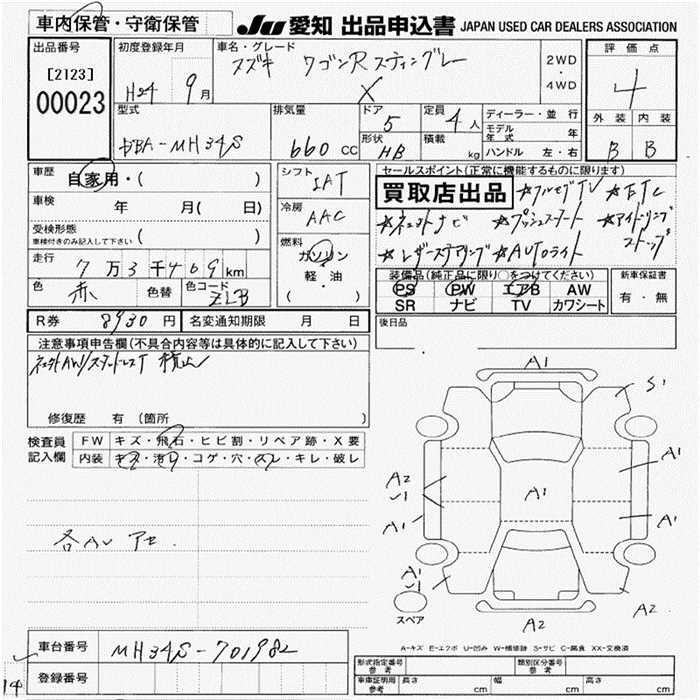 車内保管・守衛保管
JU 愛知 出品申込書 JAPAN USED CAR DEALERS ASSOCIATION
出品番号
[2123]
00023
初度登録年月
H24 9月
車名・グレード
スズキ ワゴンR スティングレー
X
2WD
・
4WD
評価点
4
外装 内装
B B
型式
DBA-MH34S
排気量
660 CC
ドア
5
形状
HB
定員
4人
積載
kg
ディーラー・並行
モデル年式 年
ハンドル 左・右
車歴
自家用・( )
車検
年 月( 日)
受検形態
車検付きのみ記入して下さい ( )
走行
7万3千469km
色
赤
色替
色コード
ZLB
シフト
IAT
冷房
AAC
燃料
ガソリン
軽・油
( )
セールスポイント(正常に機能するものに限ります)
買取店出品
☆フルセグTV ☆ETC
☆ネュトナビ ☆プッシュスタート ☆アイドリング
ストップ
☆レザーステアリング ☆AUTOライト
装備品(純正品に限り○をつけてください)
PS PW エアB AW
SR ナビ TV カワシート
新車保証書
有・無
R券 8930円
名変通知期限 月 日
後日品
注意事項申告欄(不具合内容等は具体的に記入して下さい)
修復歴 有 (箇所 )
検査員
記入欄
FW キズ・飛石・ヒビ割・リペア跡・X要
内装 キズ・汚レ・コゲ・穴・スレ・キレ・破レ
各AU アセ.
A1
S1
A1
A2
A1
A1
A1
A1
A2
A2
スペア
A-キズ E-エクボ U-凹み W-補修跡 S-サビ C-腐食 XX-交換済
車台番号
MH34S-701982
登録番号
14
形式指定番号
参考
類別区分番号
参考
車庫証明用
参考
長さ cm
幅 cm
高さ cm